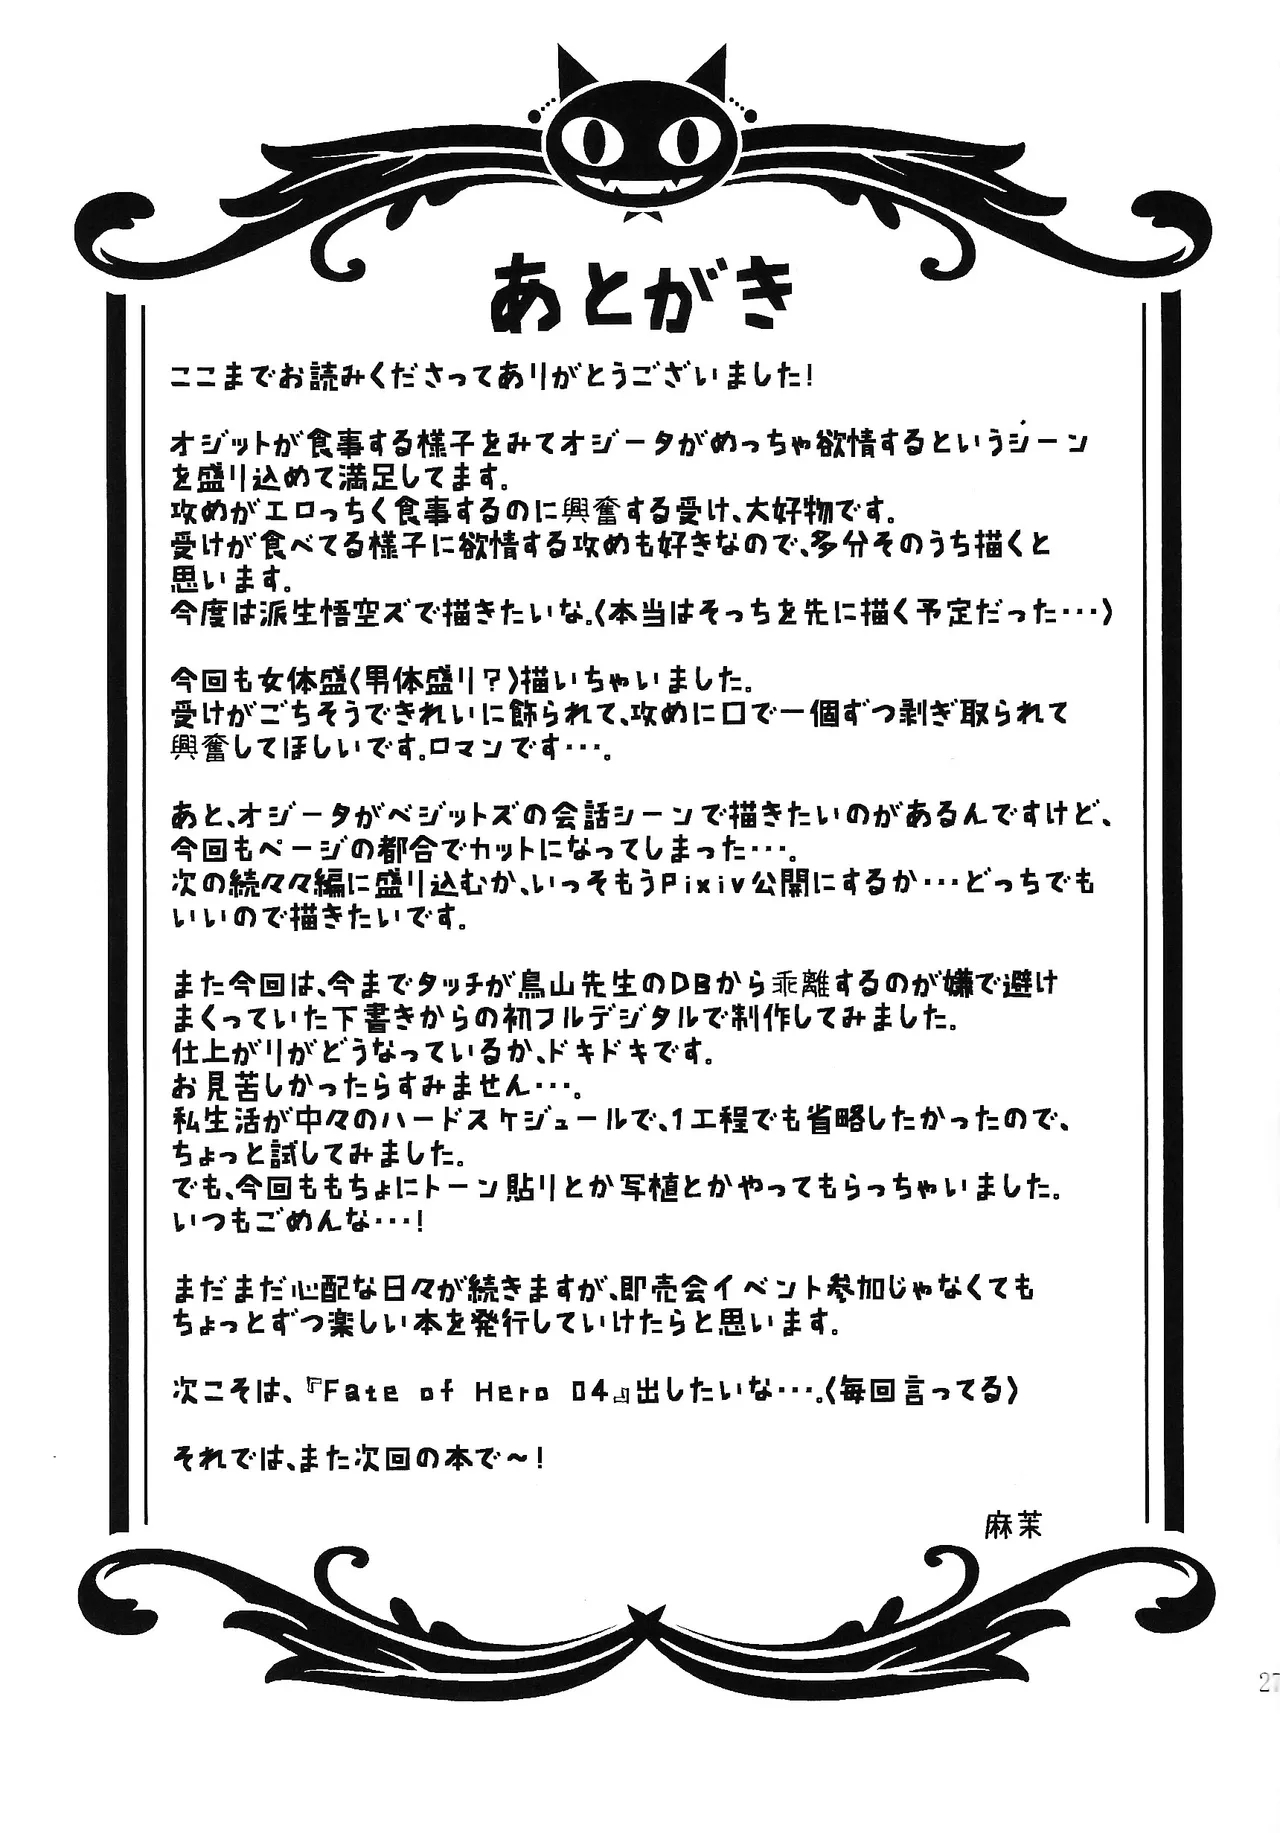 あとがき
ここまでお読みくださってありがとうございました!
オジットが食事する様子をみてオジータがめっちゃ欲情するというシーン
を盛り込めて満足してます。
攻めがエロっちく食事するのに興奮する受け、大好物です。
受けが食べてる様子に欲情する攻めも好きなので、多分そのうち描くと
思います。
今度は派生悟空ズで描きたいな。(本当はそっちを先に描く予定だった…)
今回も女体盛(男体盛り?)描いちゃいました。
受けがごちそうできれいに飾られて、攻めに口で一個ずつ剥ぎ取られて
興奮してほしいです。ロマンです…。
あと、オジータがベジットズの会話シーンで描きたいのがあるんですけど、
今回もページの都合でカットになってしまった…。
次の続々々編に盛り込むか、いっそもうPixiv公開にするか…どっちでも
いいので描きたいです。
また今回は、今までタッチが鳥山先生のDBから乖離するのが嫌で避け
まくっていた下書きからの初フルデジタルで制作してみました。
仕上がりがどうなっているか、ドキドキです。
お見苦しかったらすみません…。
私生活が中々のハードスケジュールで、1工程でも省略したかったので、
ちょっと試してみました。
でも、今回ももちょにトーン貼りとか写植とかやってもらっちゃいました。
いつもごめんな…!
まだまだ心配な日々が続きますが、即売会イベント参加じゃなくても
ちょっとずつ楽しい本を発行していけたらと思います。
次こそは、『Fate of Hero 04』出したいな…。(毎回言ってる)
それでは、また次回の本で〜!
麻茉
27